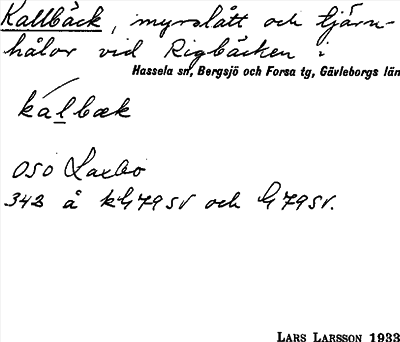 Kallbäck, myrslått och tjärn-
hålor vid Rigbäcken i
Hassela sn, Bergsjö och Forsa tg, Gävleborgs län
kalbæk
OSO Laxbo
342 å kG79SV och G79SV.
LARS LARSSON 1933